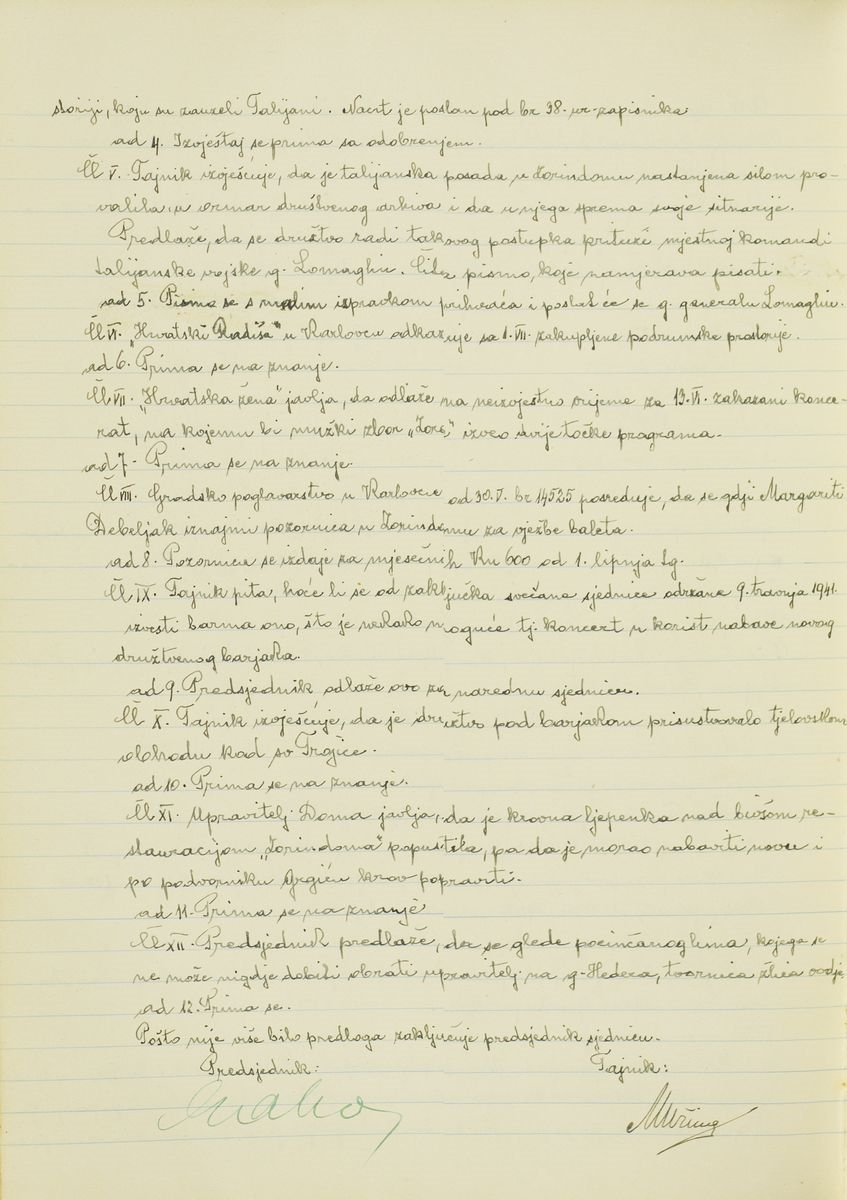 storiji, koju su zauzeli Talijani. Nacrt je poslan pod br 38. ur-zapisnika.
ad 4. Izvještaj se prima sa odobrenjem.
Čl V. Tajnik izvješćuje, da je talijanska posada u Zorindomu nastanjena silom pro-
valila u ormar društvenog arkiva i da u njega sprema svoje sitnarije.
Predlaže, da se društvo radi takovog postupka prituži mjestnoj komandi
talijanske vojske g. Lomaghiu. Čita pismo, koje namjerava pisati.
ad 5. Pismo se s malim izpravkom prihvaća i poslat će se g. generalu Lomaghiu.
Čl VI. „Hrvatski Radiša" u Karlovcu odkazuje sa 1. VII. zakupljene podrumske prostorije.
ad 6. Prima se na znanje.
Čl VII. „Hrvatska žena" javlja, da odlaže na neizvjestno vrijeme za 13. VI. zakazani konce-
rat, na kojemu bi mužki zbor „Zore," izveo dvije točke programa.
ad 7- Prima se na znanje.
Čl VIII. Gradsko poglavarstvo u Karlovcu od 30. V. br 14525 posreduje, da se gdji Margariti
Debeljak iznajmi pozornica u Zorindomu za vježbe baleta.
ad 8. Pozornica se izdaje za mjesečnih Kn 600 od 1. lipnja tg.
Čl IX. Tajnik pita, hoće li se od zaključka svečane sjednice održane 9. travnja 1941.
izvesti barma ono, što je nekako moguće tj. koncert u korist nabave novog
društvenog barjaka.
ad 9. Predsjednik odlaže ovo za narednu sjednicu.
Čl X. Tajnik izvješćuje, da je društvo pod barjakom prisustvovalo tjelovskom
obhodu kod sv Trojice.
ad 10. Prima se na znanje.
Čl XI. Upravitelj Doma javlja, da je krovna ljepenka nad bivšom re-
stauracijom „Zorindoma" popustila, pa da je morao nabaviti novu i
po podvorniku Grgiću krov popraviti.
ad 11. Prima se na znanje
Čl XII. Predsjednik predlaže, da se glede pocinčanog lima, kojega se
ne može nigdje dobiti obrati upravitelj na g. Hedera, tvornica žica ovdje.
ad 12. Prima se.
Pošto nije više bilo predloga zaključuje predsjednik sjednicu.
Predsjednik: Tajnik: